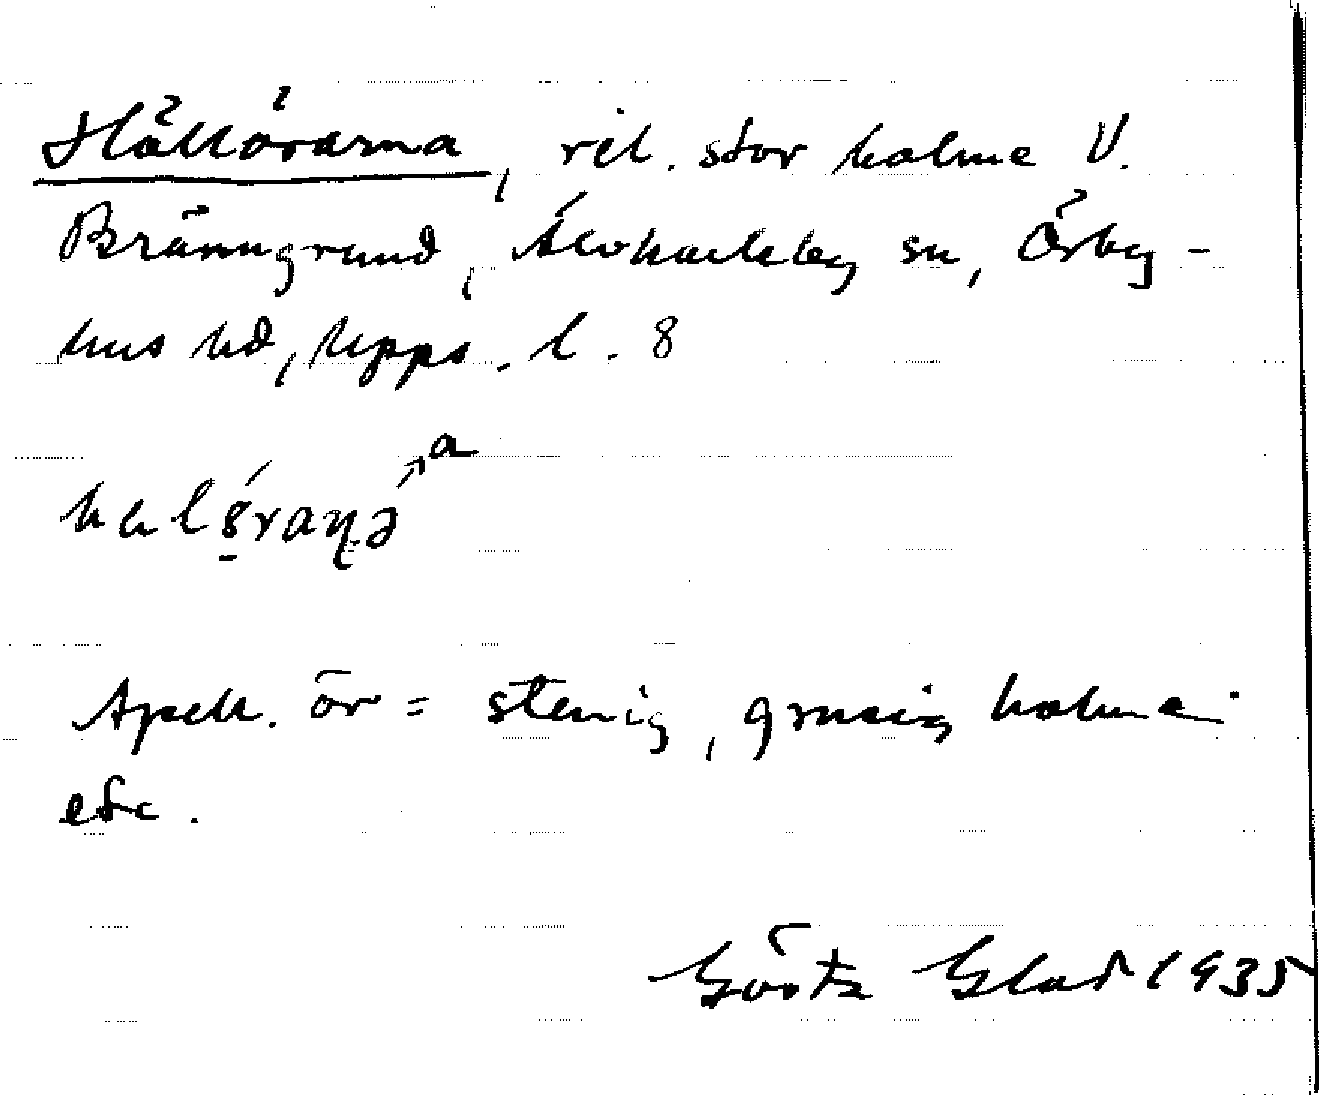 Hällörarna, rel. stor holme V.
Bränngrund, Älvkarleby sn, Örby-
hus hd, Upps. l. 8
halöraṇə ↗a
Apell. ör = stenig, grusig holme
etc.
Gösta 1935